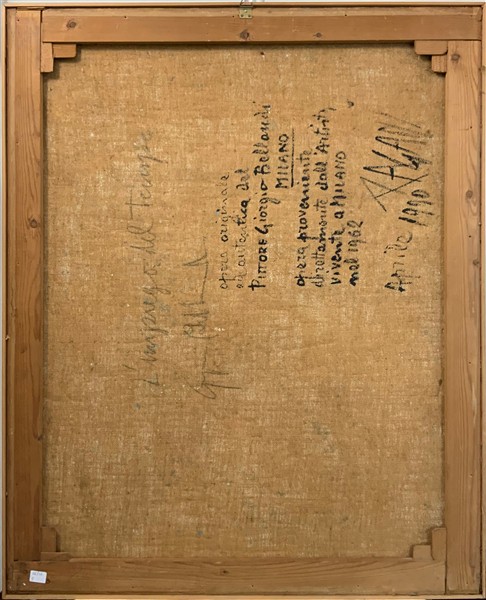 L'impiego del tempo
opera originale
e autentica del
PITTORE Giorgio Bellandi
MILANO
opera proveniente
direttamente dall'Artista
vivente a MILANO
nel 1962
Aprile 1990